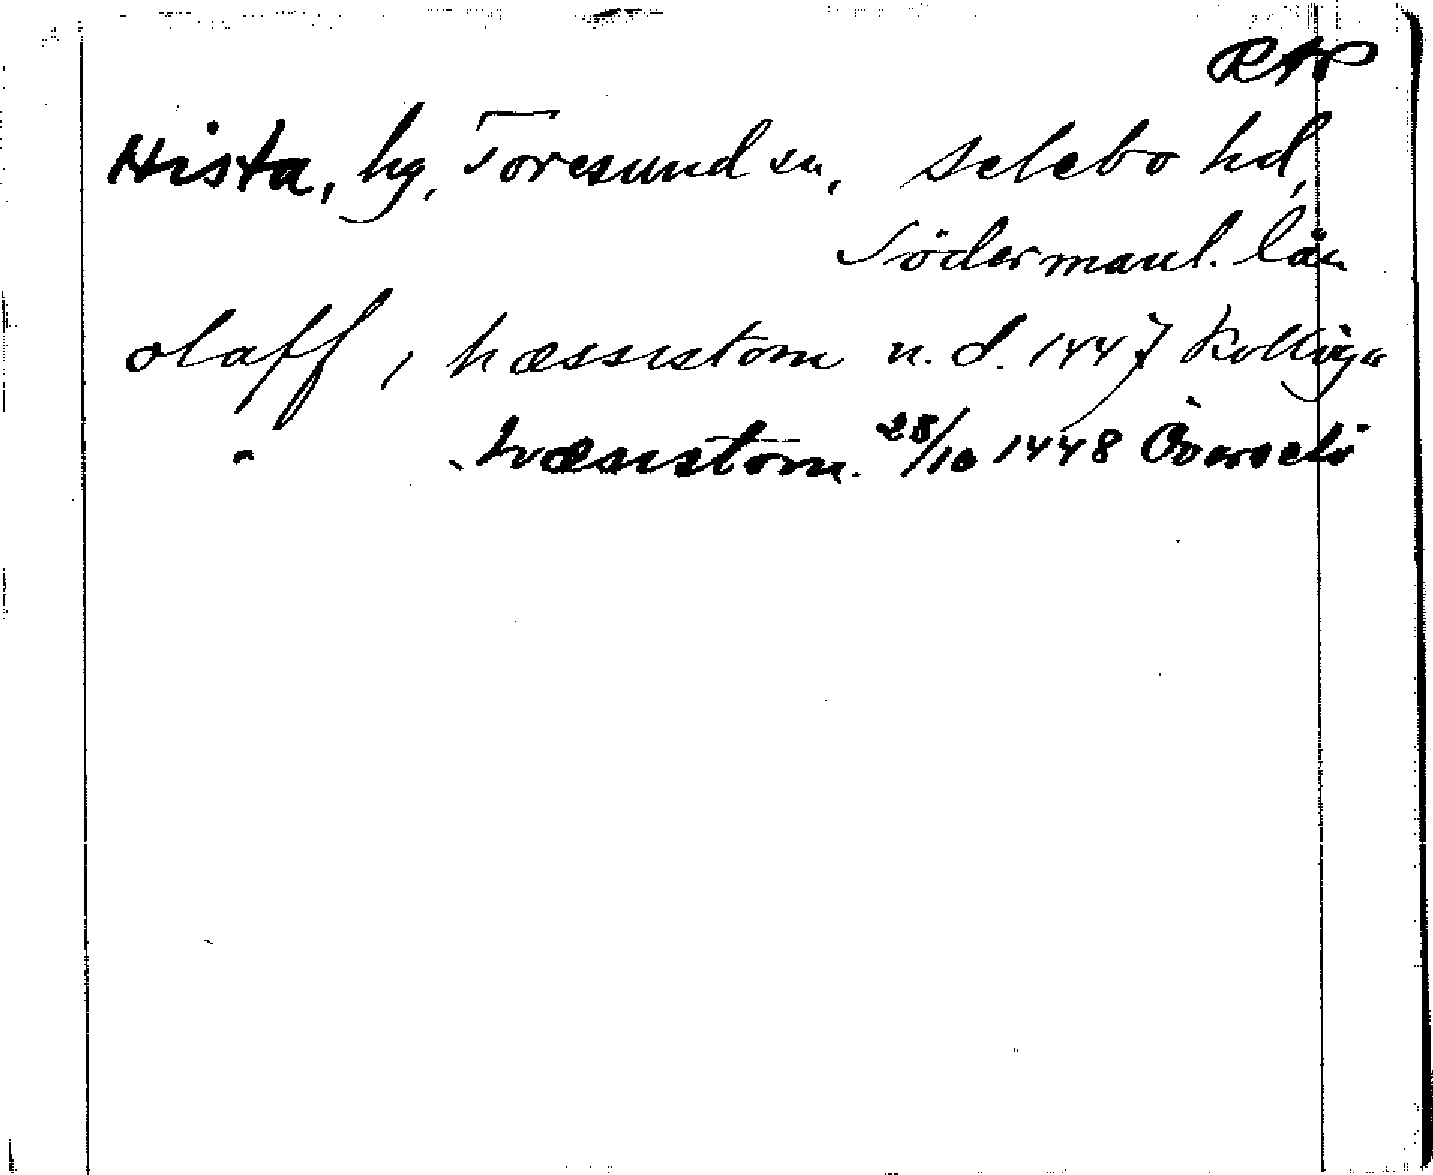 RAP
Hista, hg, Toresund sn, Selebo hd,
Södermanl. län
olaff, i hæssistom u. d. 1447 Kolliga
" . hæsistom. 28/10 1448 Överselö